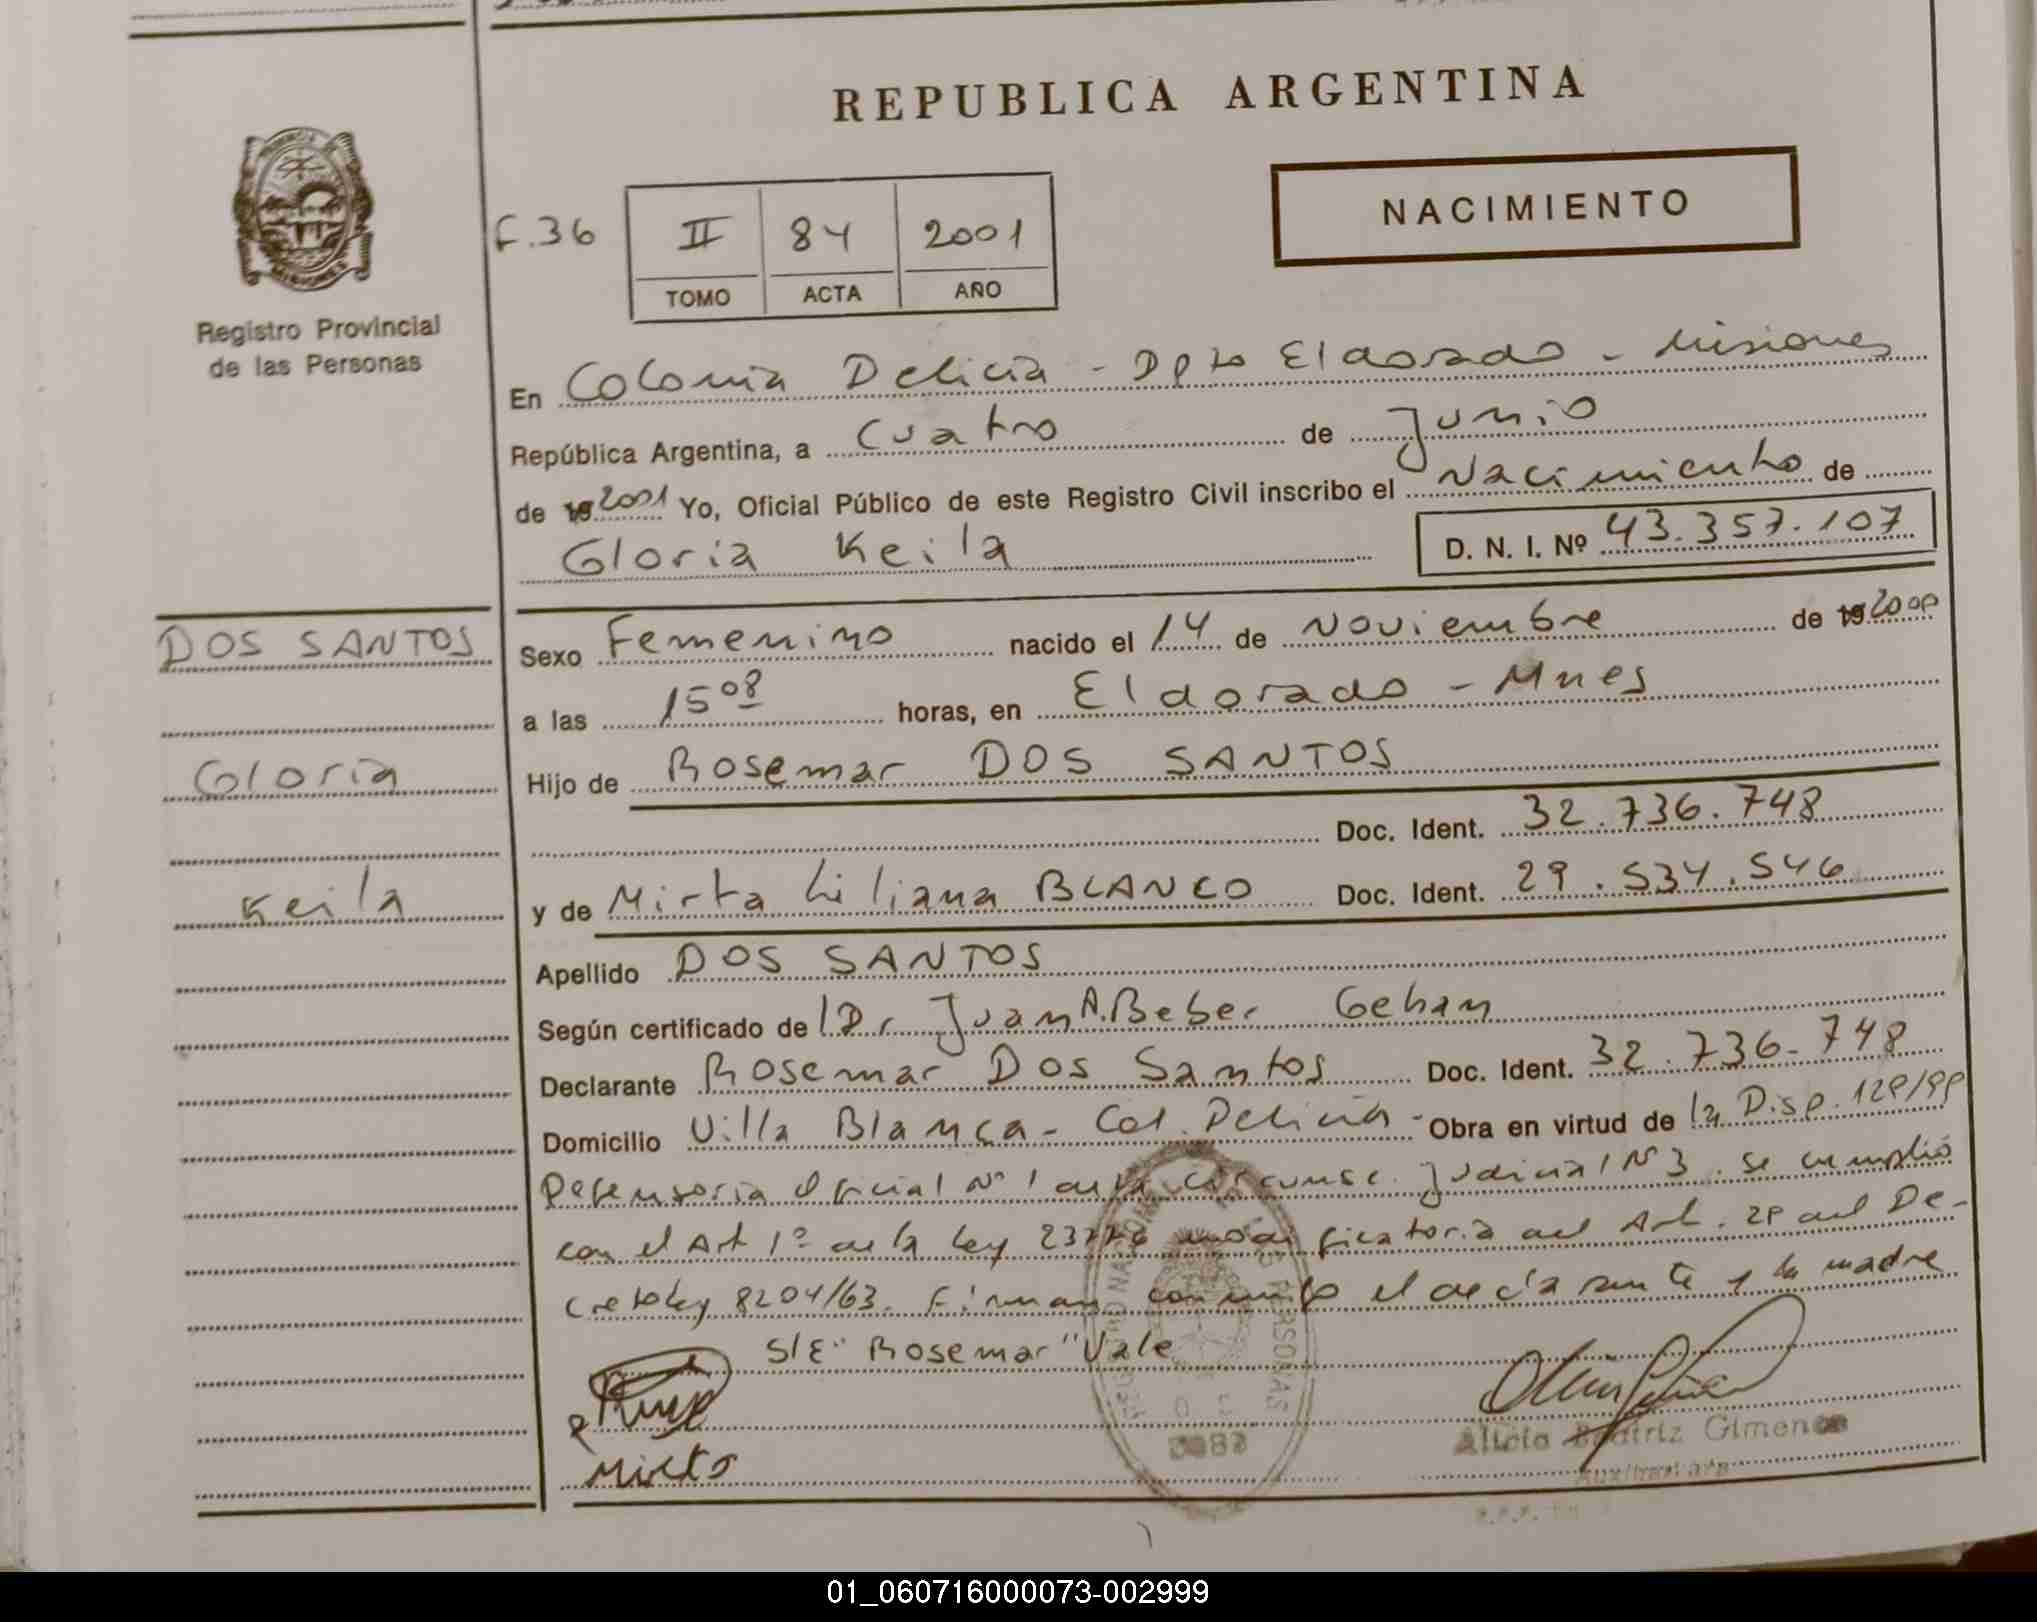 REPUBLICA ARGENTINA
NACIMIENTO
F.36
II 84 2001
TOMO ACTA AÑO
Registro Provincial
de las Personas
En Colonia Delicia - Dpto Eldorado - Misiones
República Argentina, a cuatro de Junio
de 19 2001 Yo, Oficial Público de este Registro Civil inscribo el Nacimiento de
Gloria Keila D. N. I. Nº 43.357.107
DOS SANTOS
Gloria
Keila
Sexo Femenino nacido el 14 de Noviembre de 19 2000
a las 15 08 horas, en Eldorado - Mnes
Hijo de Rosemar DOS SANTOS
Doc. Ident. 32.736.748
y de Mirta Liliana BLANCO Doc. Ident. 29.534.546
Apellido DOS SANTOS
Según certificado de Dr Juan A. Beber Gehan
Declarante Rosemar Dos Santos Doc. Ident. 32.736.748
Domicilio Villa Blanca - Col. Delicia - Obra en virtud de la Disp. 129/99
Defensoria Oficial Nº 1 de la Circunsc. Judicial Nº 3. se cumplió
con el Art 1º de la Ley modificatoria del Art. 29 del De-
creto ley 8204/63. Firman conmigo el declarante y la madre
S/E: "Rosemar" Vale
Mirta
Alicia Beatriz Gimenez
PERSONAS
01_060716000073-002999